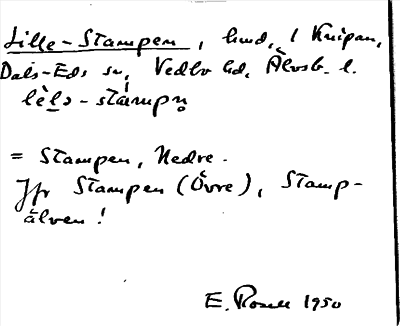 Lille-Stampen, hmd, i Knipan,
Dals-Eds sn, Vedbo hd, Älvsb. l.
lèls-stámpn̥
= Stampen, Nedre.
Jfr Stampen (Övre), Stamp-
älven!
E. Rosell 1950